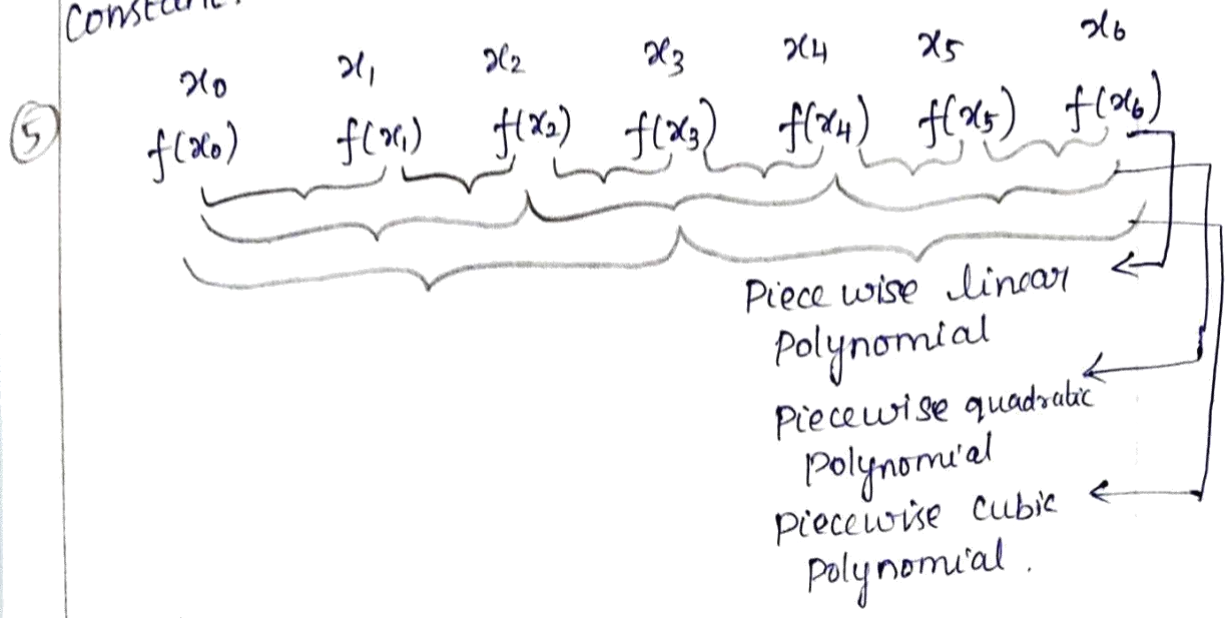 x₀ x₁ x₂ x₃ x₄ x₅ x₆
5 f(x₀) f(x₁) f(x₂) f(x₃) f(x₄) f(x₅) f(x₆)
Piece wise linear
Polynomial
Piecewise quadratic
Polynomial
Piecewise cubic
Polynomial.